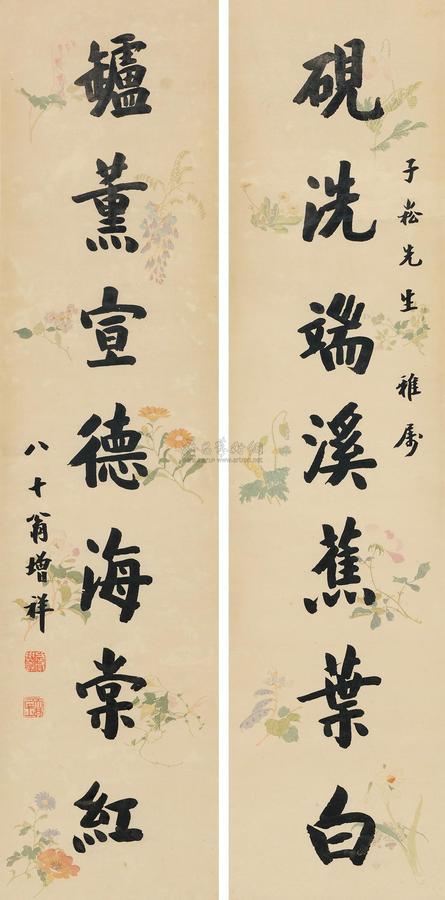 子崧先生 雅属
硯洗端溪蕉葉白
鑪薰宣德海棠紅
八十翁增祥